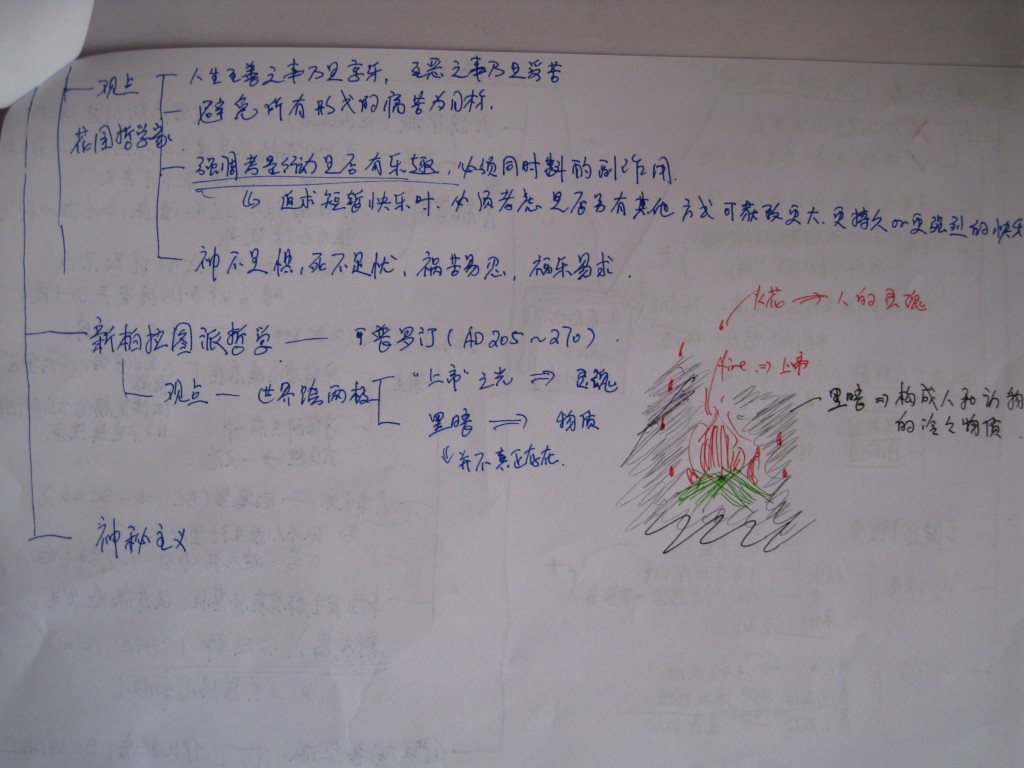 观点
人生至善之事乃是享乐，至恶之事乃是受苦
避免所有形式的痛苦为目标.
花园哲学家
强调考量行动是否有乐趣，必须同时斟的副作用.
追求短暂快乐时，必须考虑是否另有其他方式可获致更大、更持久or更强烈的快乐
神不足惧，死不足忧、祸苦易忍，福乐易求.
新柏拉图派哲学 — 普罗汀(AD 205~270).
观点 — 世界跨两极
"上帝"之光 ⇒ 灵魂
黑暗 ⇒ 物质
并不真正存在.
神秘主义
火花 → 人的灵魂
fire ⇒ 上帝
黑暗 ⇒ 构成人和动物
的冷冷物质.